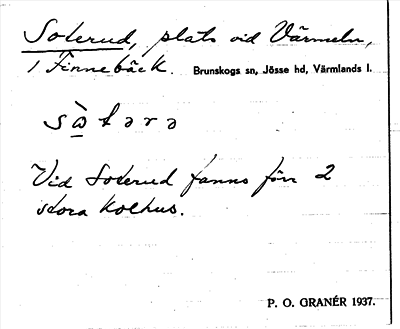 Soterud, plats vid Värmeln,
i Finnebäck. Brunskogs sn, Jösse hd, Värmlands l.
sὼtərə
Vid Soterud fanns förr 2
stora kolhus.
P. O. GRANÉR 1937.